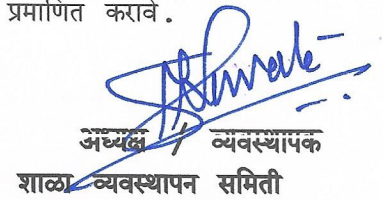 प्रमाणित करावे.
अध्यक्ष / व्यवस्थापक
शाळा व्यवस्थापन समिती